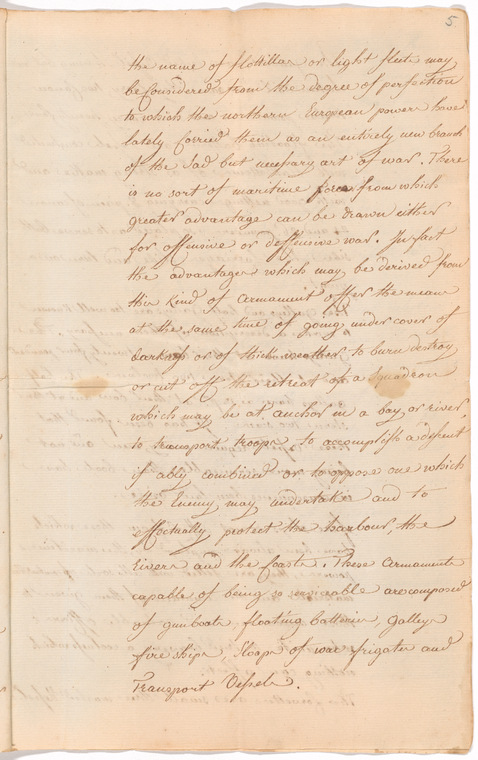 5
the name of flotillas or light fleets may
be Considered from the degree of perfection
to which the northern European powers have
lately Carried them as an entirely new branch
of the sad but necessary art of war. There
is no sort of maritime force from which
greater advantage can be drawn either
for offensive or deffensive war. In fact
the advantages which may be derived from
this kind of armament offer the means
at the same time of going under cover of
darkness or of thick weather to burn destroy
or cut off the retreat of a squadron
which may be at anchor in a bay or river,
to transport troops to accomplish a descent
if ably combined or to oppose one which
the Enemy may undertake and to
effectually protect the harbour, the
rivers and the Coasts. These armaments
capable of being so serviceable are composed
of gun boats, floating batteries, galleys
fire ships sloops of war frigates and
Transport Vessels.